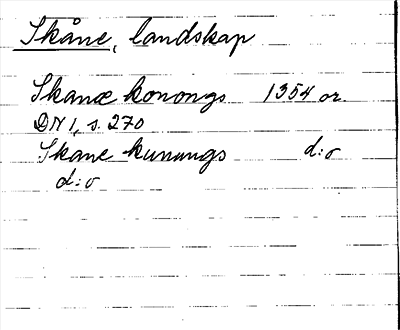 Skåne, landskap
Skanæ konongs 1354 or.
DN 1, s. 270
Skane kunungs d:o
d:o